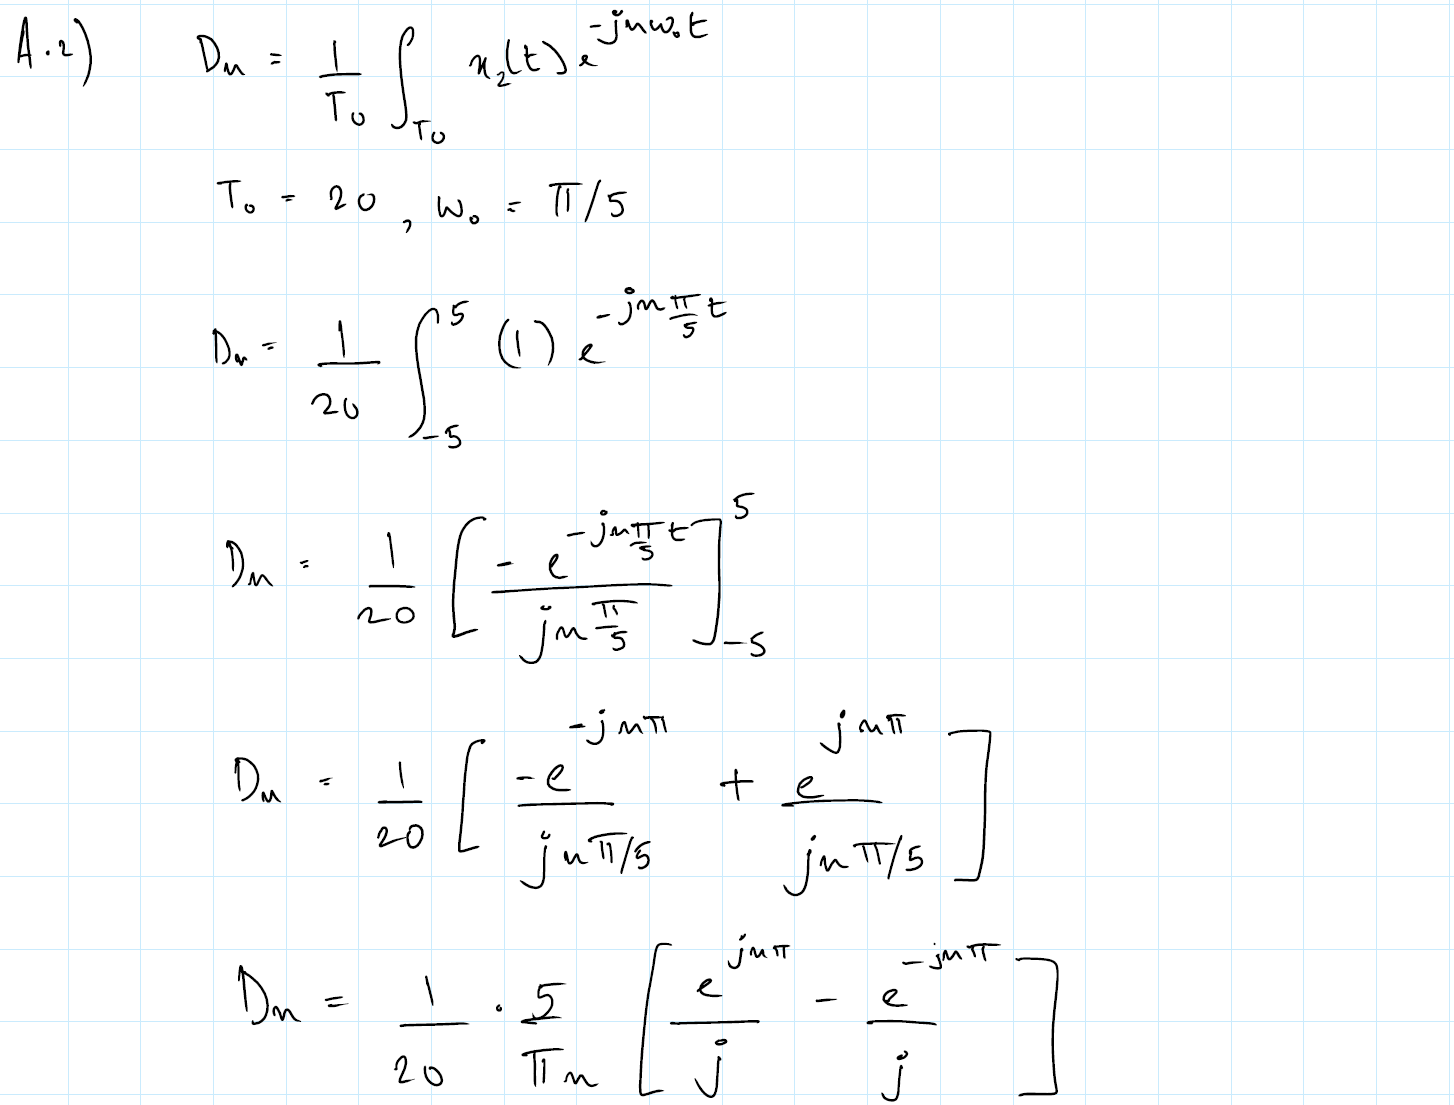 A.2) Dn = 1/T₀ ∫_T₀ x₂(t) e^(-jnω₀t)
T₀ = 20, ω₀ = π/5
Dn = 1/20 ∫_-5^5 (1) e^(-jn π/5 t)
Dn = 1/20 [ -e^(-jn π/5 t) / (jn π/5) ]_-5^5
Dn = 1/20 [ -e^(-jnπ) / (jnπ/5) + e^(jnπ) / (jnπ/5) ]
Dn = 1/20 · 5/(πn) [ e^(jnπ) / j - e^(-jnπ) / j ]